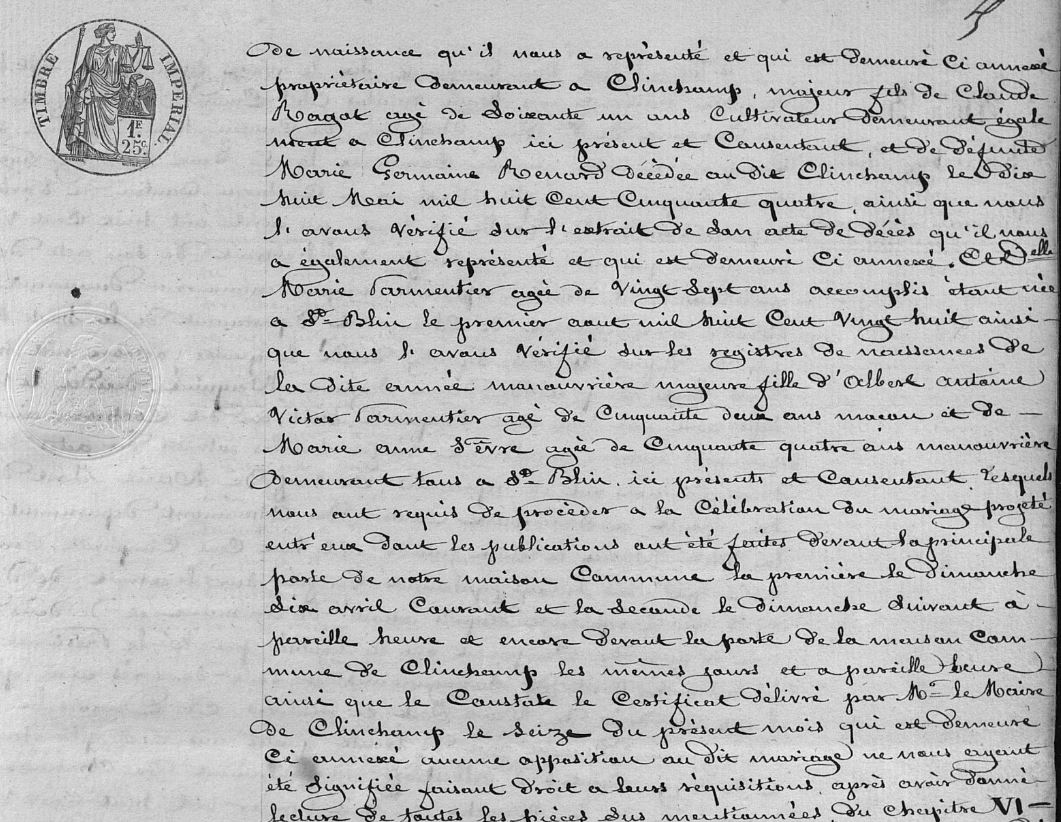 TIMBRE IMPERIAL
1F.
25c.
De naissance qu'il nous a représenté et qui est demeuré Ci annexé
propriétaire demeurant a Clinchamp, majeur fils de Claude
Ragot agé de Soixante un ans Cultivateur demeurant égale
ment a Clinchamp ici présent et Consentant, et de défunte
Marie Germaine Renard décédée au dit Clinchamp le dix
huit Mai mil huit Cent Cinquante quatre, ainsi que nous
l'avons Vérifié sur l'extrait de son acte de décès qu'il nous
a également représenté et qui est demeuré Ci annexé. Et Delle
Marie Parmentier agée de Vingt Sept ans accomplis étant née
a St Blin le premier aout mil huit Cent Vingt huit ainsi
que nous l'avons Vérifié sur les registres de naissances de
la dite année manouvrière majeure fille d'Albert antoine
Victor Parmentier agé de Cinquante deux ans macon et de —
Marie anne Fèvre agée de Cinquante quatre ans manouvrière
demeurant tous a St Blin ici présents et Consentant, Lesquels
nous ont requis de procéder a la Célébration du mariage projeté
entr'eux dont les publications ont été faites devant la principale
porte de notre maison Commune la première le dimanche
six avril Courant et la seconde le dimanche suivant à -
pareille heure et encore devant la porte de la maison Com—
mune de Clinchamp les mêmes jours et a pareille heure
ainsi que le Constate le Certificat délivré par Mr le Maire
de Clinchamp le seize du présent mois qui est demeuré
Ci annexé aucune opposition au dit mariage ne nous ayant
été signifiée faisant droit a leurs réquisitions, après avoir donné
lecture de toutes les pièces sus mentionnées du chapitre VI —